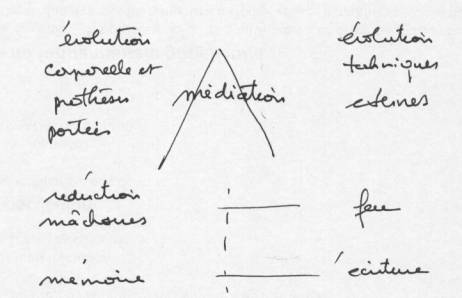 évolution
corporelle et
prothèses
portées
médiation
évolution
techniques
externes
réduction
mâchoires
feu
mémoire
écriture